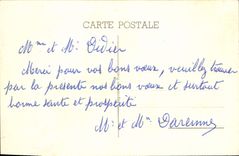 CARTE POSTALE
Mme et Mr Didier
Merci pour vos bons vœux, veuillez trouver
par la présente nos bons vœux et surtout
bonne santé et prospérité
Mr et Mme